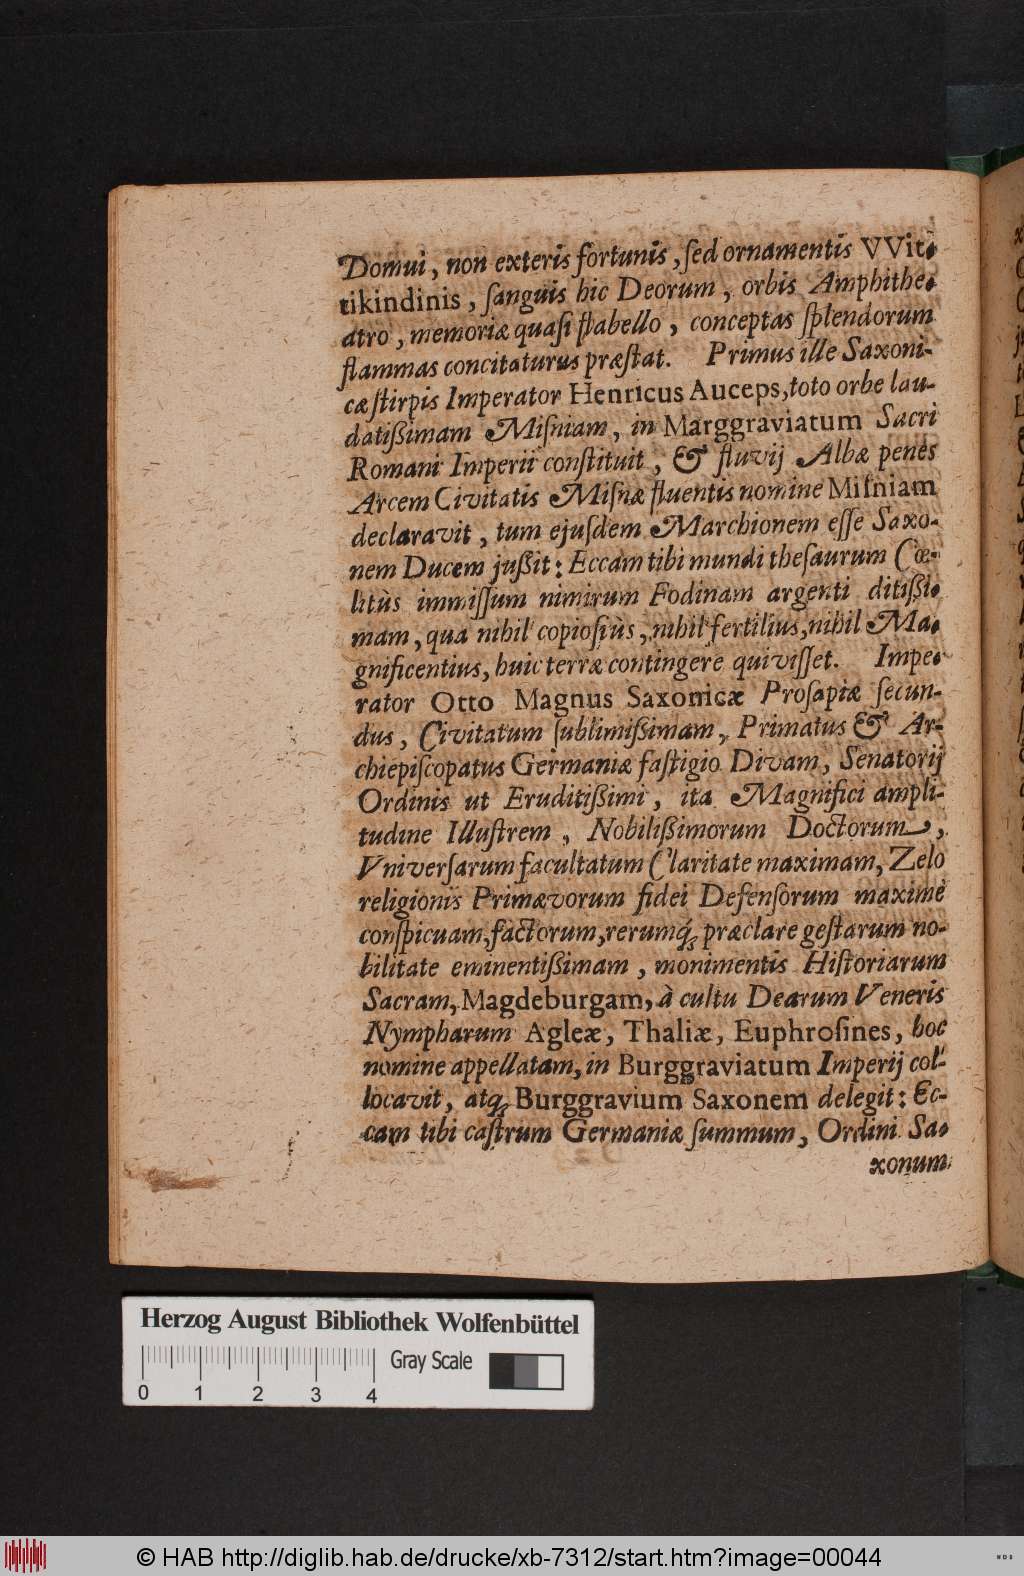 Domui, non exteris fortunis, ſed ornamentis VVit-
tikindinis, ſanguis hic Deorum, orbis Amphithe-
atro, memoriæ quaſi flabello, conceptas ſplendorum
flammas concitaturus præſtat. Primus ille Saxoni-
cæ ſtirpis Imperator Henricus Auceps, toto orbe lau-
datißimam Miſniam, in Marggraviatum Sacri
Romani Imperii conſtituit, & fluvij Albæ penès
Arcem Civitatis Miſnæ fluentis nomine Miſniam
declaravit, tum ejuſdem Marchionem eſſe Saxo-
nem Ducem jußit: Eccam tibi mundi theſaurum Cœ-
litùs immiſſum nimirum Fodinam argenti ditißi-
mam, qua nihil copioſiùs, nihil fertilius, nihil Ma-
gnificentius, huic terræ contingere quiviſſet. Impe-
rator Otto Magnus Saxonicæ Proſapiæ ſecun-
dus, Civitatum ſublimißimam, Primatus & Ar-
chiepiſcopatus Germaniæ faſtigio Divam, Senatorij
Ordinis ut Eruditißimi, ita Magnifici ampli-
tudine Illuſtrem, Nobilißimorum Doctorum,
Vniverſarum facultatum Claritate maximam, Zelo
religionis Primævorum fidei Defenſorum maximè
conſpicuam, factorum, rerumq́; præclare geſtarum no-
bilitate eminentißimam, monimentis Hiſtoriarum
Sacram, Magdeburgam, à cultu Dearum Veneris
Nympharum Agleæ, Thaliæ, Euphroſines, hoc
nomine appellatam, in Burggraviatum Imperij col-
locavit, atq; Burggravium Saxonem delegit: Ec-
cam tibi caſtrum Germaniæ ſummum, Ordini Sa-
xonum
Herzog August Bibliothek Wolfenbüttel
Gray Scale
0 1 2 3 4
© HAB http://diglib.hab.de/drucke/xb-7312/start.htm?image=00044